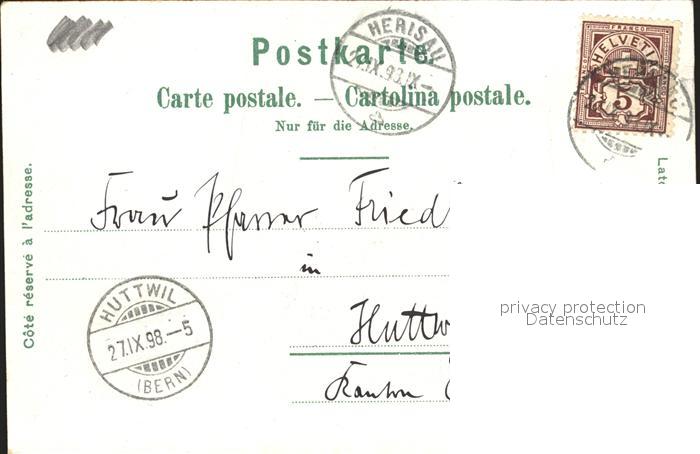 HERISAU
27.IX.98.IX-
HELVETIA
FRANCO
5
Postkarte.
Carte postale. — Cartolina postale.
Nur für die Adresse.
Côté réservé à l'adresse.
Lato
Frau Pfarrer Fried
in
Huttw
Kanton
HUTTWIL
27.IX.98.-5
(BERN)
privacy protection
Datenschutz